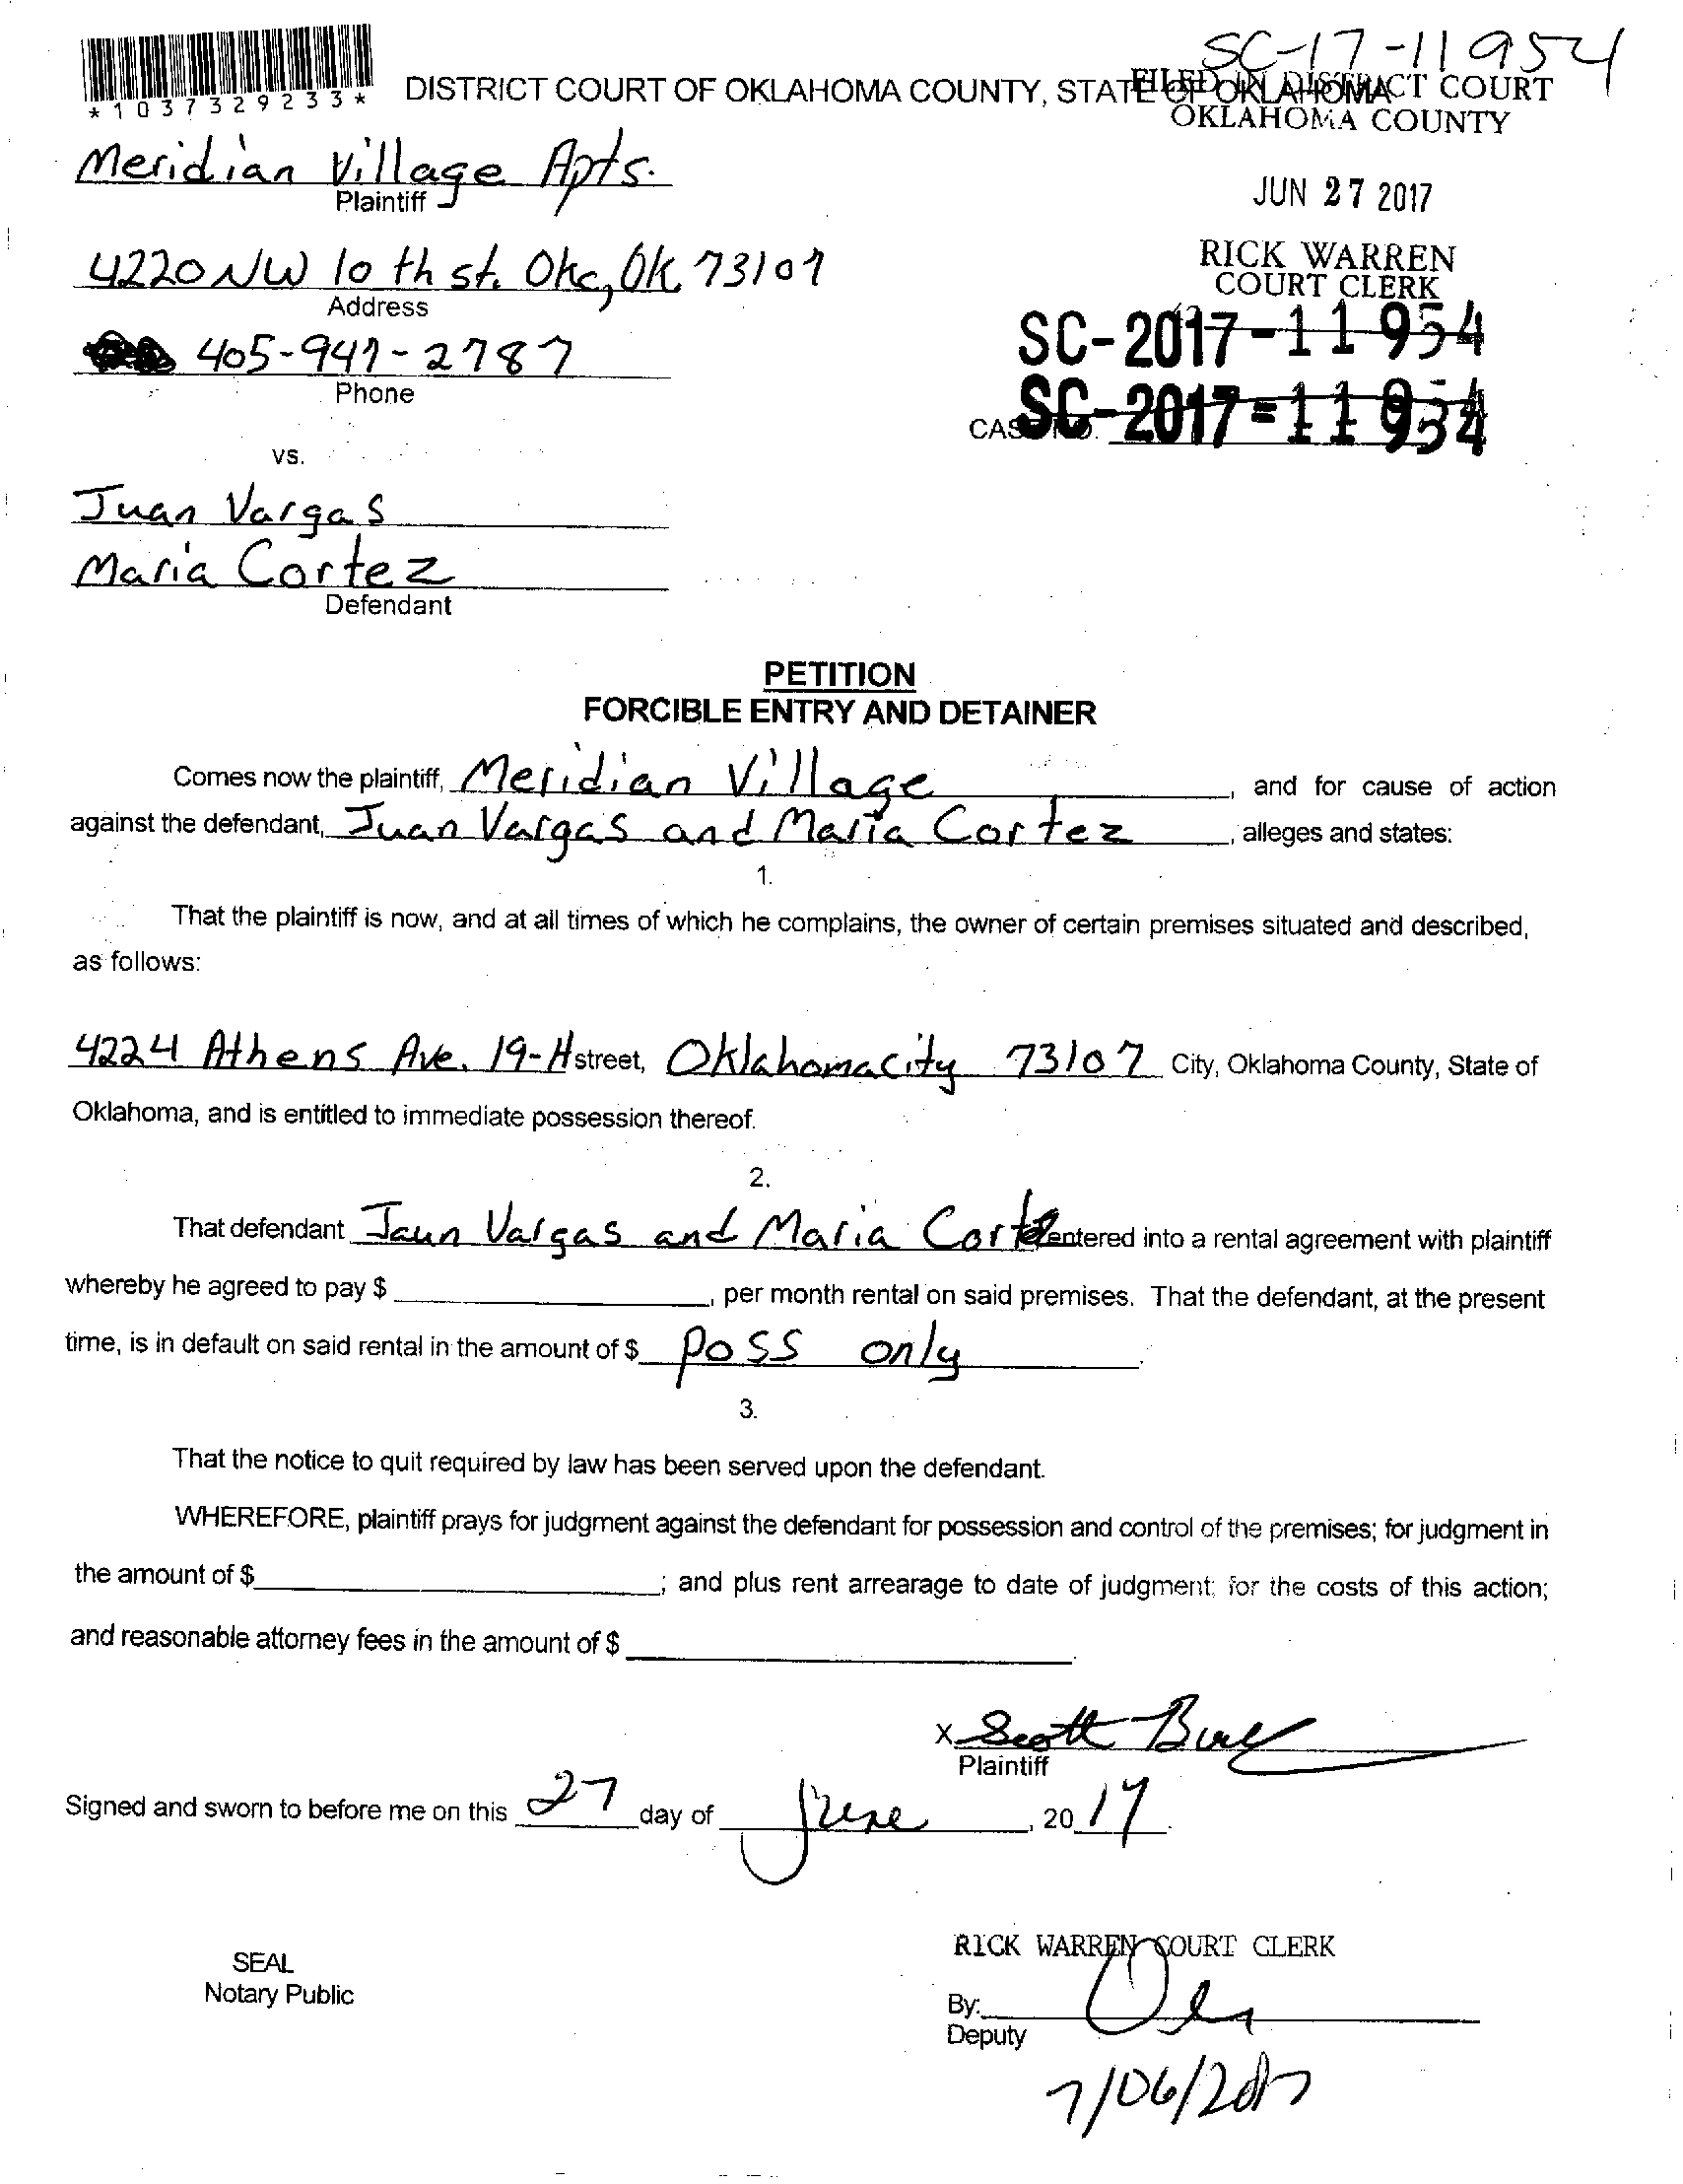 SC-17-11954
*1037329233*
DISTRICT COURT OF OKLAHOMA COUNTY, STATE OF OKLAHOMA
FILED IN DISTRICT COURT
OKLAHOMA COUNTY
Meridian Village Apts.
Plaintiff
JUN 27 2017
4220 NW 10th st. Okc, Ok 73107
Address
RICK WARREN
COURT CLERK
405-947-2787
Phone
SC-2017-11954
CASE NO. SC-2017-11954
vs.
Juan Vargas
Maria Cortez
Defendant
PETITION
FORCIBLE ENTRY AND DETAINER
Comes now the plaintiff, Meridian Village, and for cause of action
against the defendant, Juan Vargas and Maria Cortez, alleges and states:
1.
That the plaintiff is now, and at all times of which he complains, the owner of certain premises situated and described,
as follows:
4224 Athens Ave. 19-H street, Oklahoma city 73107 City, Oklahoma County, State of
Oklahoma, and is entitled to immediate possession thereof.
2.
That defendant Jaun Vargas and Maria Cortez entered into a rental agreement with plaintiff
whereby he agreed to pay $ , per month rental on said premises. That the defendant, at the present
time, is in default on said rental in the amount of $ poss only.
3.
That the notice to quit required by law has been served upon the defendant.
WHEREFORE, plaintiff prays for judgment against the defendant for possession and control of the premises; for judgment in
the amount of $ ; and plus rent arrearage to date of judgment; for the costs of this action;
and reasonable attorney fees in the amount of $ .
X Scott
Plaintiff
Signed and sworn to before me on this 27 day of June, 2017.
RICK WARREN COURT CLERK
SEAL
Notary Public
By:
Deputy
7/06/2017